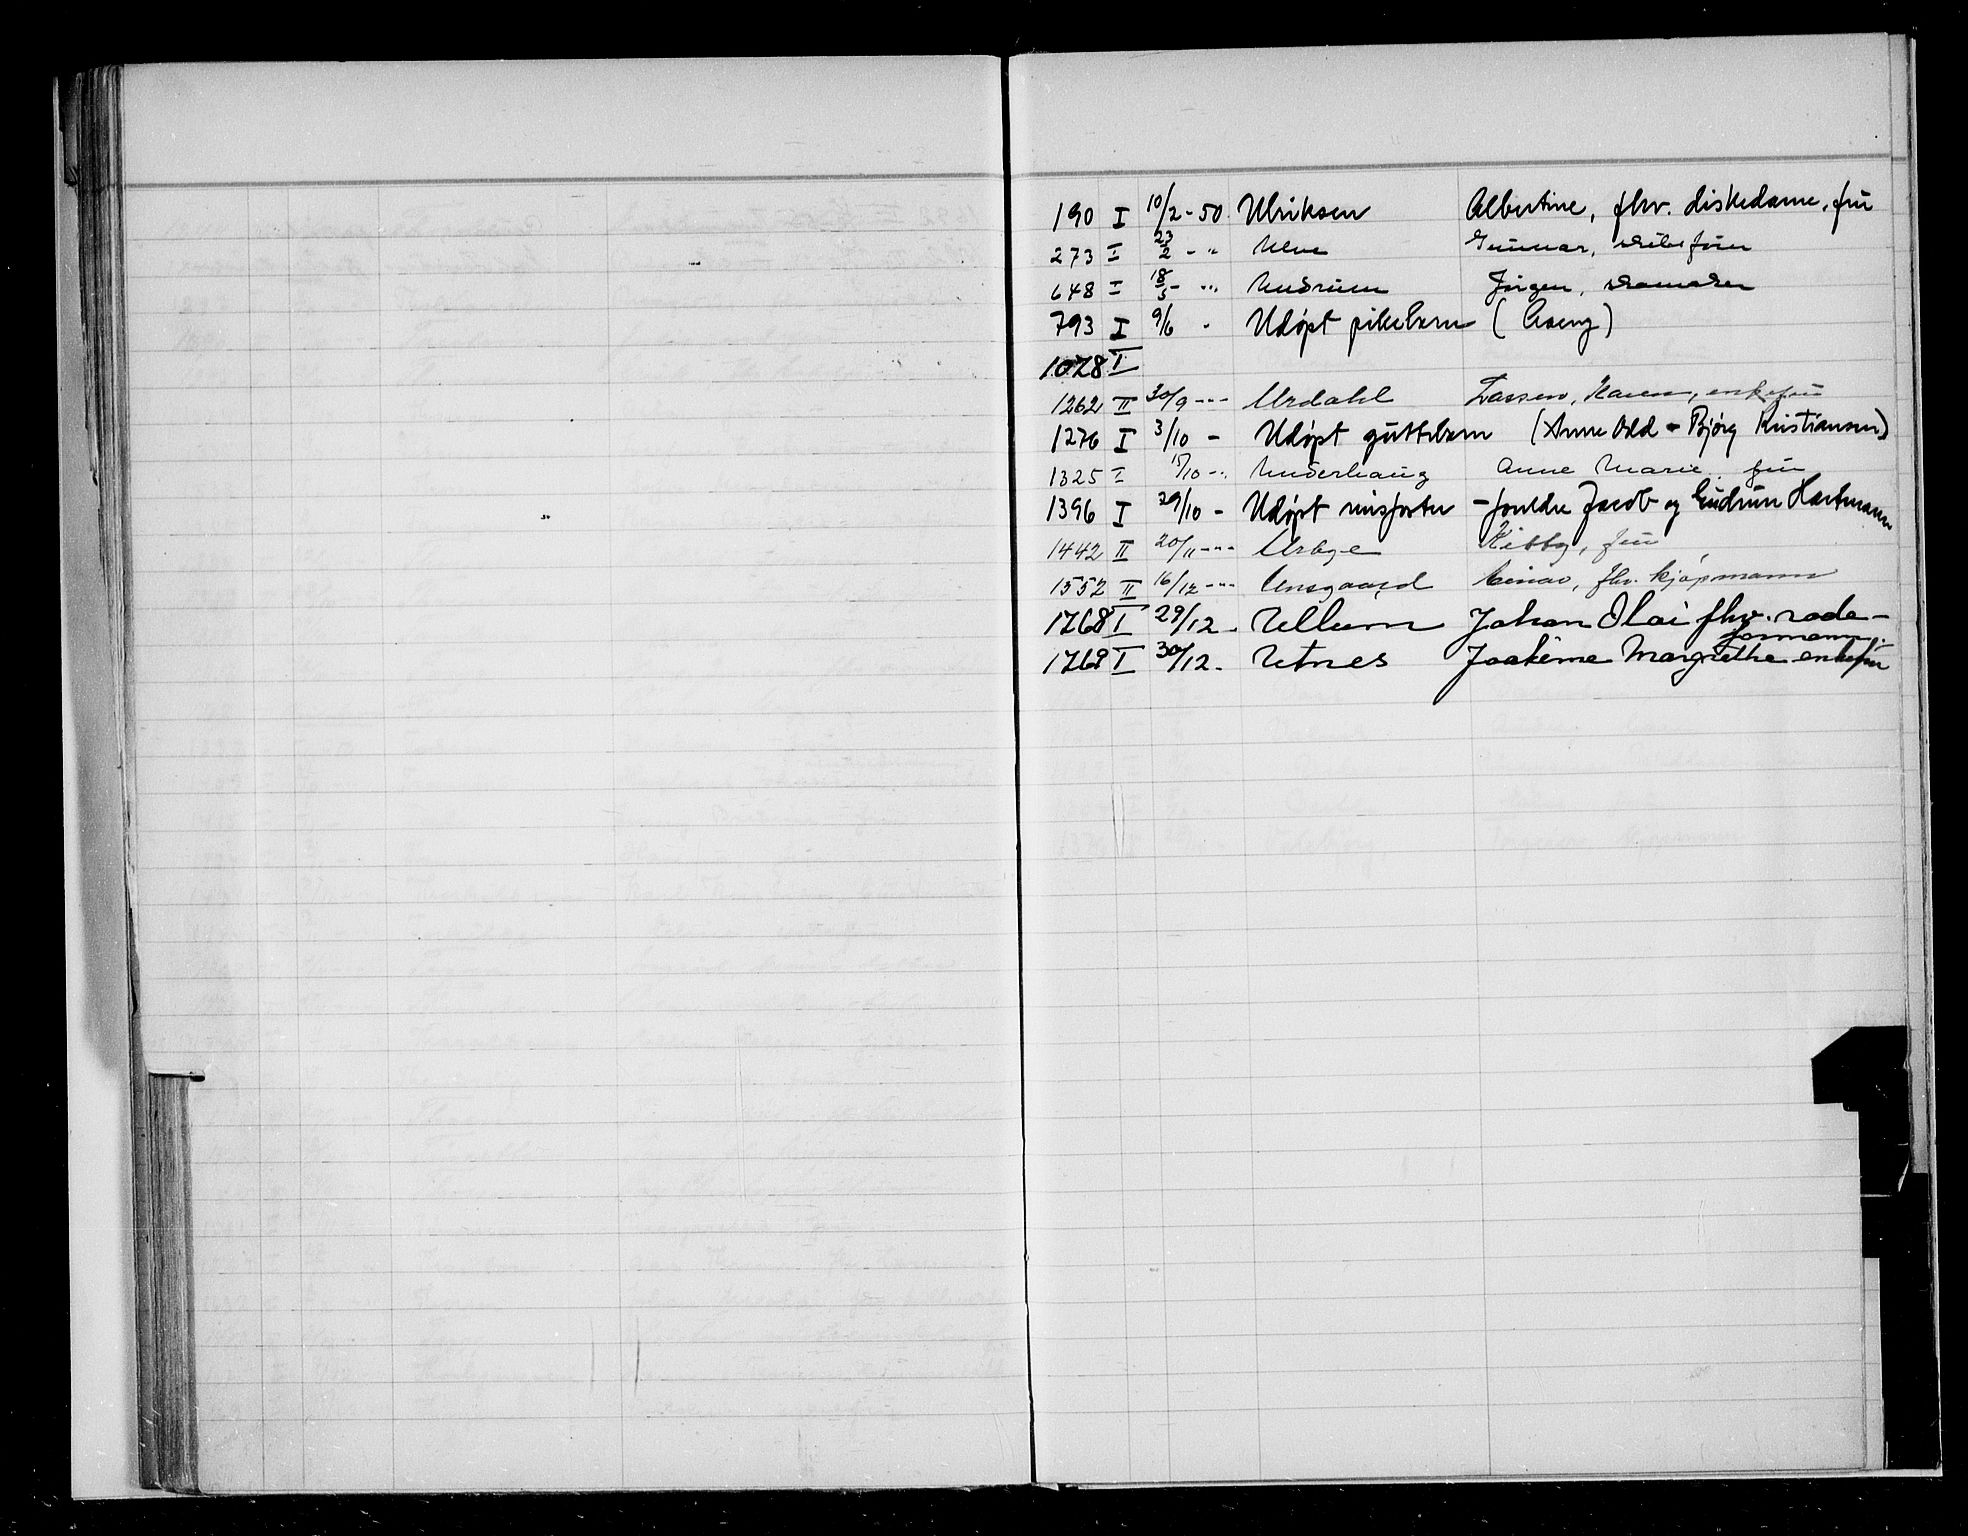 190 I 10/2 - 50 Ulriksen Albertine, fhv. diskedame, frü
273 I 23/2 - " Ulve Gunnar,
648 I 18/5 - " Undrum Jörgen, skomaker
793 I 9/6 - Udøpt pikebarn (Aseng)
1028 I
1262 II 30/9 - " Urdahl Lassen, Karen, enkefrü
1276 I 3/10 - Udøpt güttebarn (Anne Odd & Bjørg Kristiansen)
1325 I 15/10 - " Underhaug Anne Marie frü
1396 I 29/10 - Udøpt misfoster - foreldre Jacob og Gudrun Hartmann
1442 II 20/11 - " Urbye Kibby, frü
1552 II 16/12 - " Unsgaard Einar, fhv. kjøpmann
1768 I 29/12 - Ullum Johan Olai fhv. rode-
formann.
1769 I 30/12 - Utnes Joakime Margrethe enkefrü